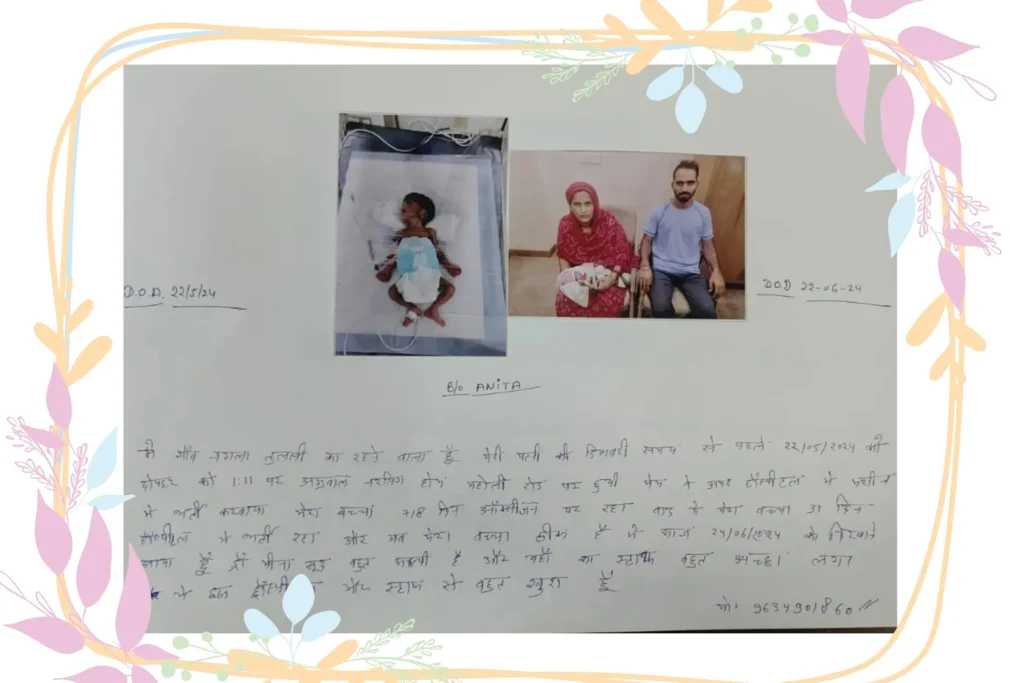 D.O.A. 22/5/24
DOD 22-06-24
B/o ANITA
मैं गाँव का रहने वाला हूँ मेरी पत्नी की डिलीवरी समय से पहले 22/05/2024 को
दोपहर को 1:11 पर अग्रवाल नर्सिंग होम महोली रोड पर हुयी मैंने अपर हॉस्पीटल में मशीन
में भर्ती करवाया मेरा बच्चा 7/8 दिन ऑक्सीजन पर रहा बाद में मेरा बच्चा 31 दिन
हॉस्पीटल में भर्ती रहा और अब मेरा बच्चा ठीक है मैं आज 24/06/2024 को दिखाने
आया हूँ डॉ मीना बहुत अच्छी है और यहाँ का स्टाफ बहुत अच्छा लगा
मैं इस और स्टाफ से बहुत खुश हूँ
मो। 9634901860